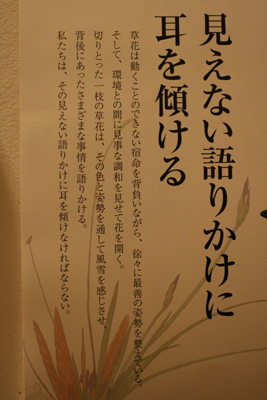 見えない語りかけに
耳を傾ける
草花は動くことのできない宿命を背負いながら、徐々に最善の姿勢を整えている。
そして、環境との間に見事な調和を見せて花を開く。
切りとった一枝の草花は、その色と姿勢を通して風雪を感じさせ、
背後にあったさまざまな事情を語りかける。
私たちは、その見えない語りかけに耳を傾けなければならない。